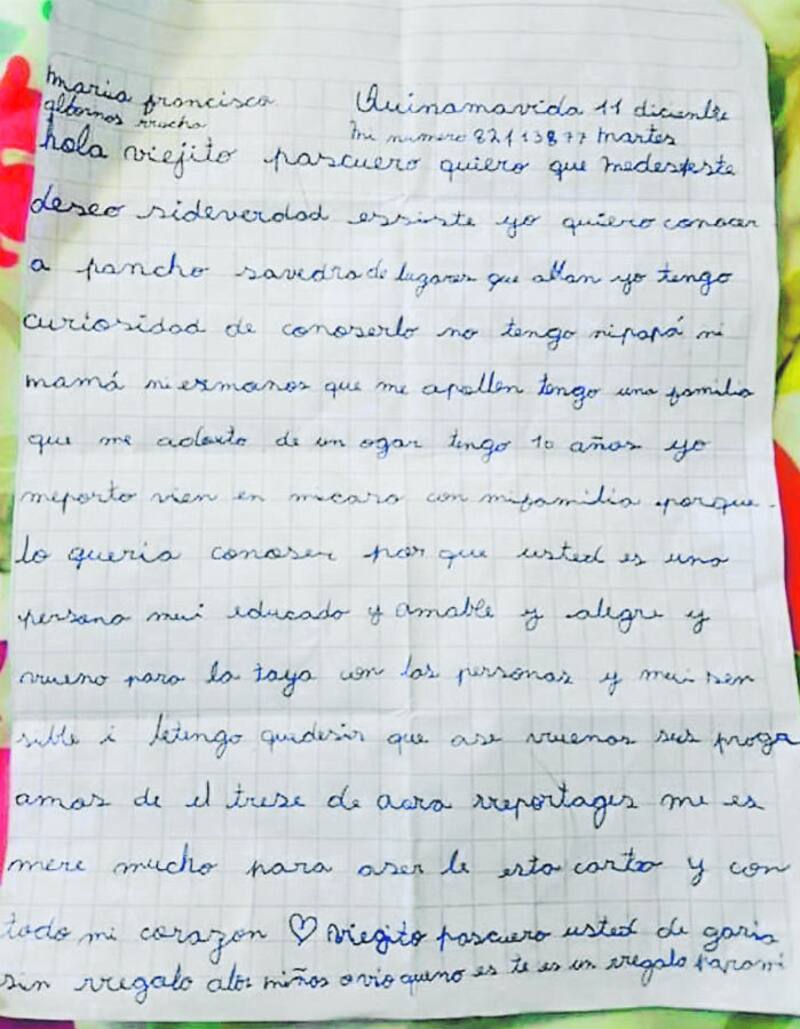 maria francisca
Quinamavida 11 diciembre
mi numero 82113877 martes
hola viejito pascuero quiero que medes este
deseo sideverdad essiste yo quiero conocer
a pancho savedra de lugares que ablan yo tengo
curiosidad de conoserlo no tengo nipapá ni
mamá ni ermanos que me apollen tengo una familia
que me adoxto de un ogar tengo 10 años yo
meporto vien en micara con mifamilia porque
lo queria conoser por que usted es una
persona mui educado y amable y alegre y
vrueno para la taya con las personas y mui sen
sible i letengo quidesir que ase vruenos sus progr
amas de el trese de aora rreportages me es
mere mucho para aser le esta carta y con
todo mi corazon ♡ viegito pascuero usted de garia
sin rregalo alos niños ovio queno es te es un rregalo parami